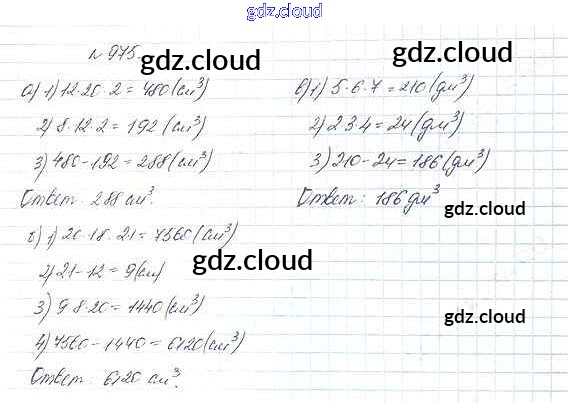 gdz.cloud
№ 975.
gdz.cloud
gdz.cloud
а) 1) 12·20·2 = 480 (см³)
2) 8·12·2 = 192 (см³)
3) 480-192 = 288 (см³)
Ответ: 288 см³.
б) 1) 20·18·21 = 7560 (см³)
2) 21-12 = 9 (см)
3) 9·8·20 = 1440 (см³)
4) 7560-1440 = 6120 (см³)
Ответ: 6120 см³.
в) 1) 5·6·7 = 210 (дм³)
2) 2·3·4 = 24 (дм³)
3) 210-24 = 186 (дм³)
Ответ: 186 дм³
gdz.cloud
gdz.cloud
gdz.cloud
gdz.cloud